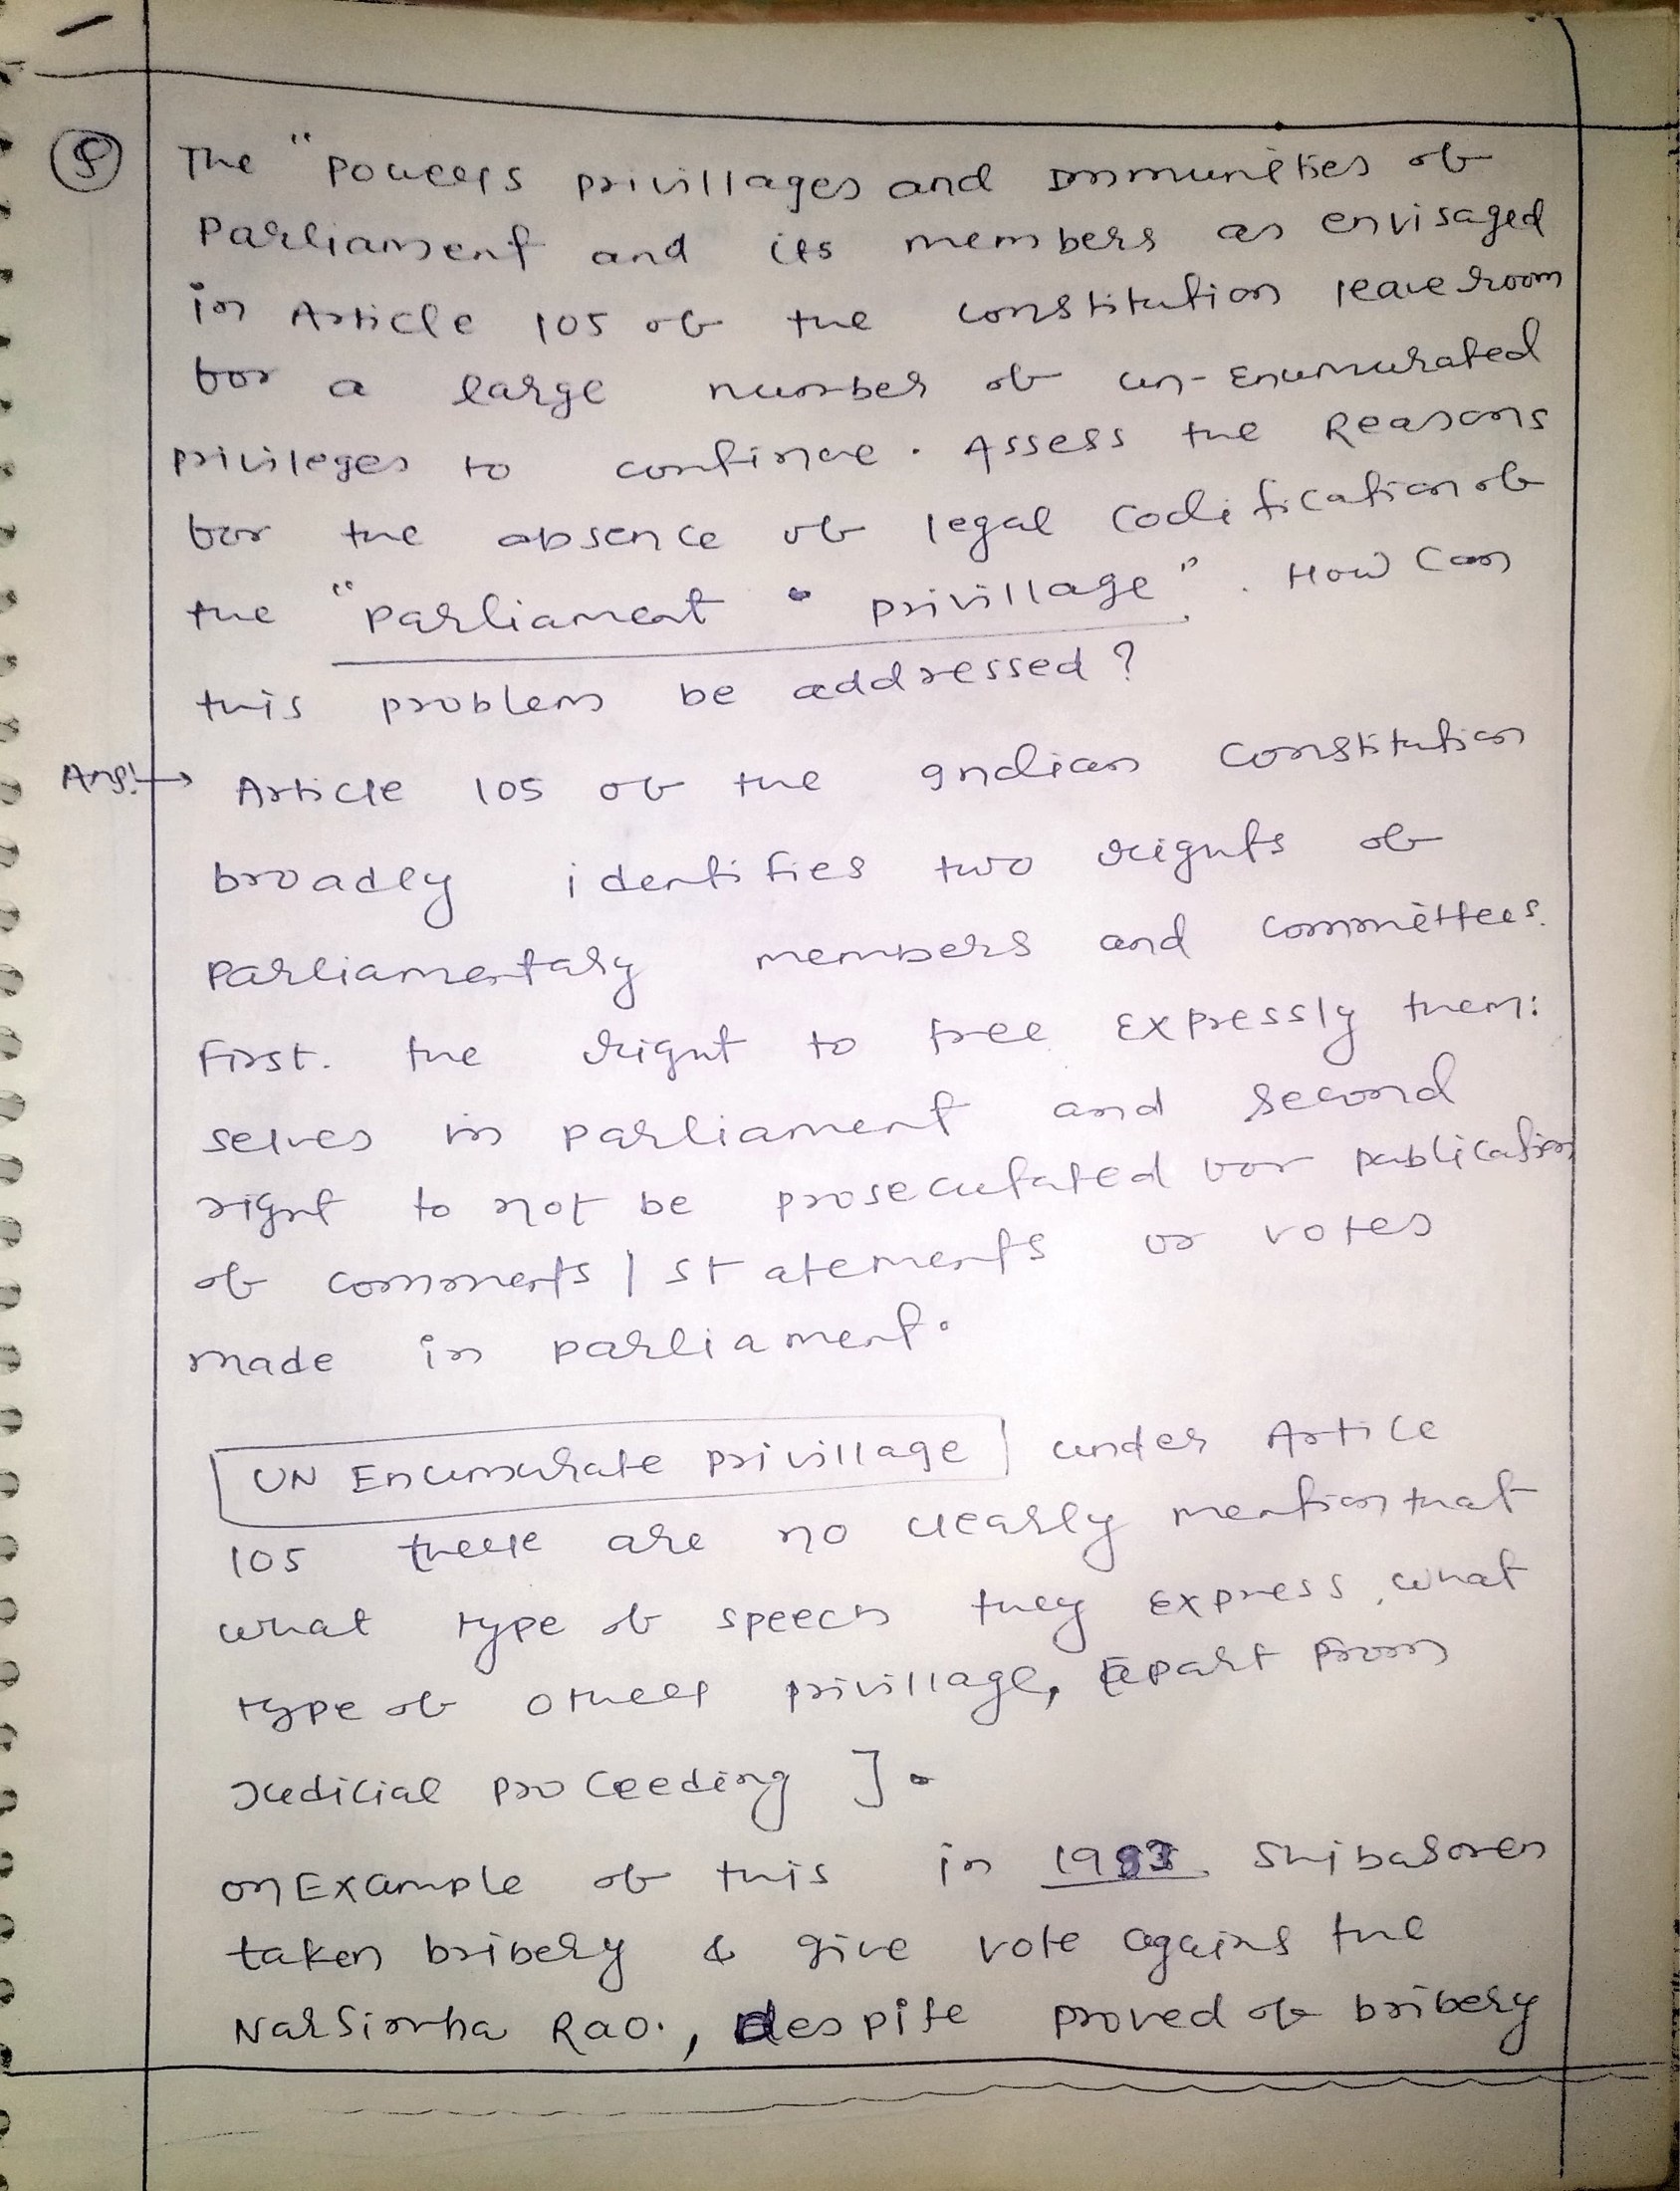 8 The "Powers privillages and Immunities of
Parliament and its members as envisaged
in Article 105 of the constitution leave room
for a large number of un-Enumurated
privileges to continue. Assess the Reasons
for the absence of legal codification of
the "Parliament privillage". How Can
this problem be addressed?
Ans:→ Article 105 of the Indian Constitution
broadly identifies two rights of
Parliamentary members and committees.
First. the right to free Expressly them:
selves in parliament and second
right to not be prosecutated for publication
of comments / statements or votes
made in parliament.
UN Enumurate privillage under Artice
105 there are no clearly mention that
what type of speech they Express, what
type of other privillage, Apart From
Judicial proceeding ].
on Example of this in 1993 Shibasoren
taken bribery & give vote agains the
NarSimha Rao., despite proved of bribery